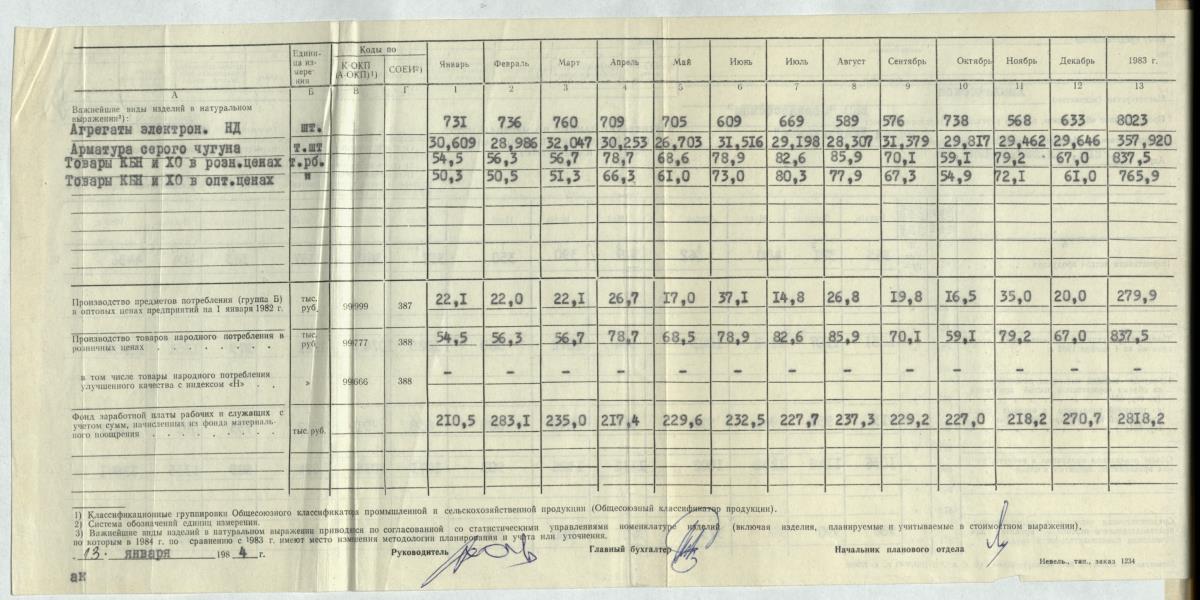 Едини-ца изме-рения Коды по Январь Февраль Март Апрель Май Июнь Июль Август Сентябрь Октябрь Ноябрь Декабрь 1983 г.
К-ОКП (А-ОКП)¹) СОЕИ²)
А Б В Г 1 2 3 4 5 6 7 8 9 10 11 12 13
Важнейшие виды изделий в натуральном
выражении³):
Агрегаты электрон. НД шт. 731 736 760 709 705 609 669 589 576 738 568 633 8023
Арматура серого чугуна т.шт 30,609 28,986 32,047 30,253 26,703 31,516 29,198 28,307 31,379 29,817 29,462 29,646 357,920
Товары КБН и ХО в розн.ценах т.рб. 54,5 56,3 56,7 78,7 68,6 78,9 82,6 85,9 70,1 59,1 79,2 67,0 837,5
Товары КБН и ХО в опт.ценах " 50,3 50,5 51,3 66,3 61,0 73,0 80,3 77,9 67,3 54,9 72,1 61,0 765,9
Производство предметов потребления (группа Б) тыс.
в оптовых ценах предприятий на 1 января 1982 г. руб. 99999 387 22,1 22,0 22,1 26,7 17,0 37,1 14,8 26,8 19,8 16,5 35,0 20,0 279,9
Производство товаров народного потребления в тыс.
розничных ценах . . . . . . . . руб. 99777 388 54,5 56,3 56,7 78,7 68,5 78,9 82,6 85,9 70,1 59,1 79,2 67,0 837,5
в том числе товары народного потребления
улучшенного качества с индексом «Н» . . » 99666 388 – – – – – – – – – – – – –
Фонд заработной платы рабочих и служащих с
учетом сумм, начисленных из фонда материаль-
ного поощрения . . . . . . . . . тыс. руб. 210,5 283,1 235,0 217,4 229,6 232,5 227,7 237,3 229,2 227,0 218,2 270,7 2818,2
1) Классификационные группировки Общесоюзного классификатора промышленной и сельскохозяйственной продукции (Общесоюзный классификатор продукции).
2) Система обозначений единиц измерения.
3) Важнейшие виды изделий в натуральном выражении приводятся по согласованной со статистическими управлениями номенклатуре изделий (включая изделия, планируемые и учитываемые в стоимостном выражении),
по которым в 1984 г. по сравнению с 1983 г. имеют место изменения методологии планирования и учета или уточнения.
13. января 1984 г. Руководитель Главный бухгалтер Начальник планового отдела
Невель., тип., заказ 1234
ан